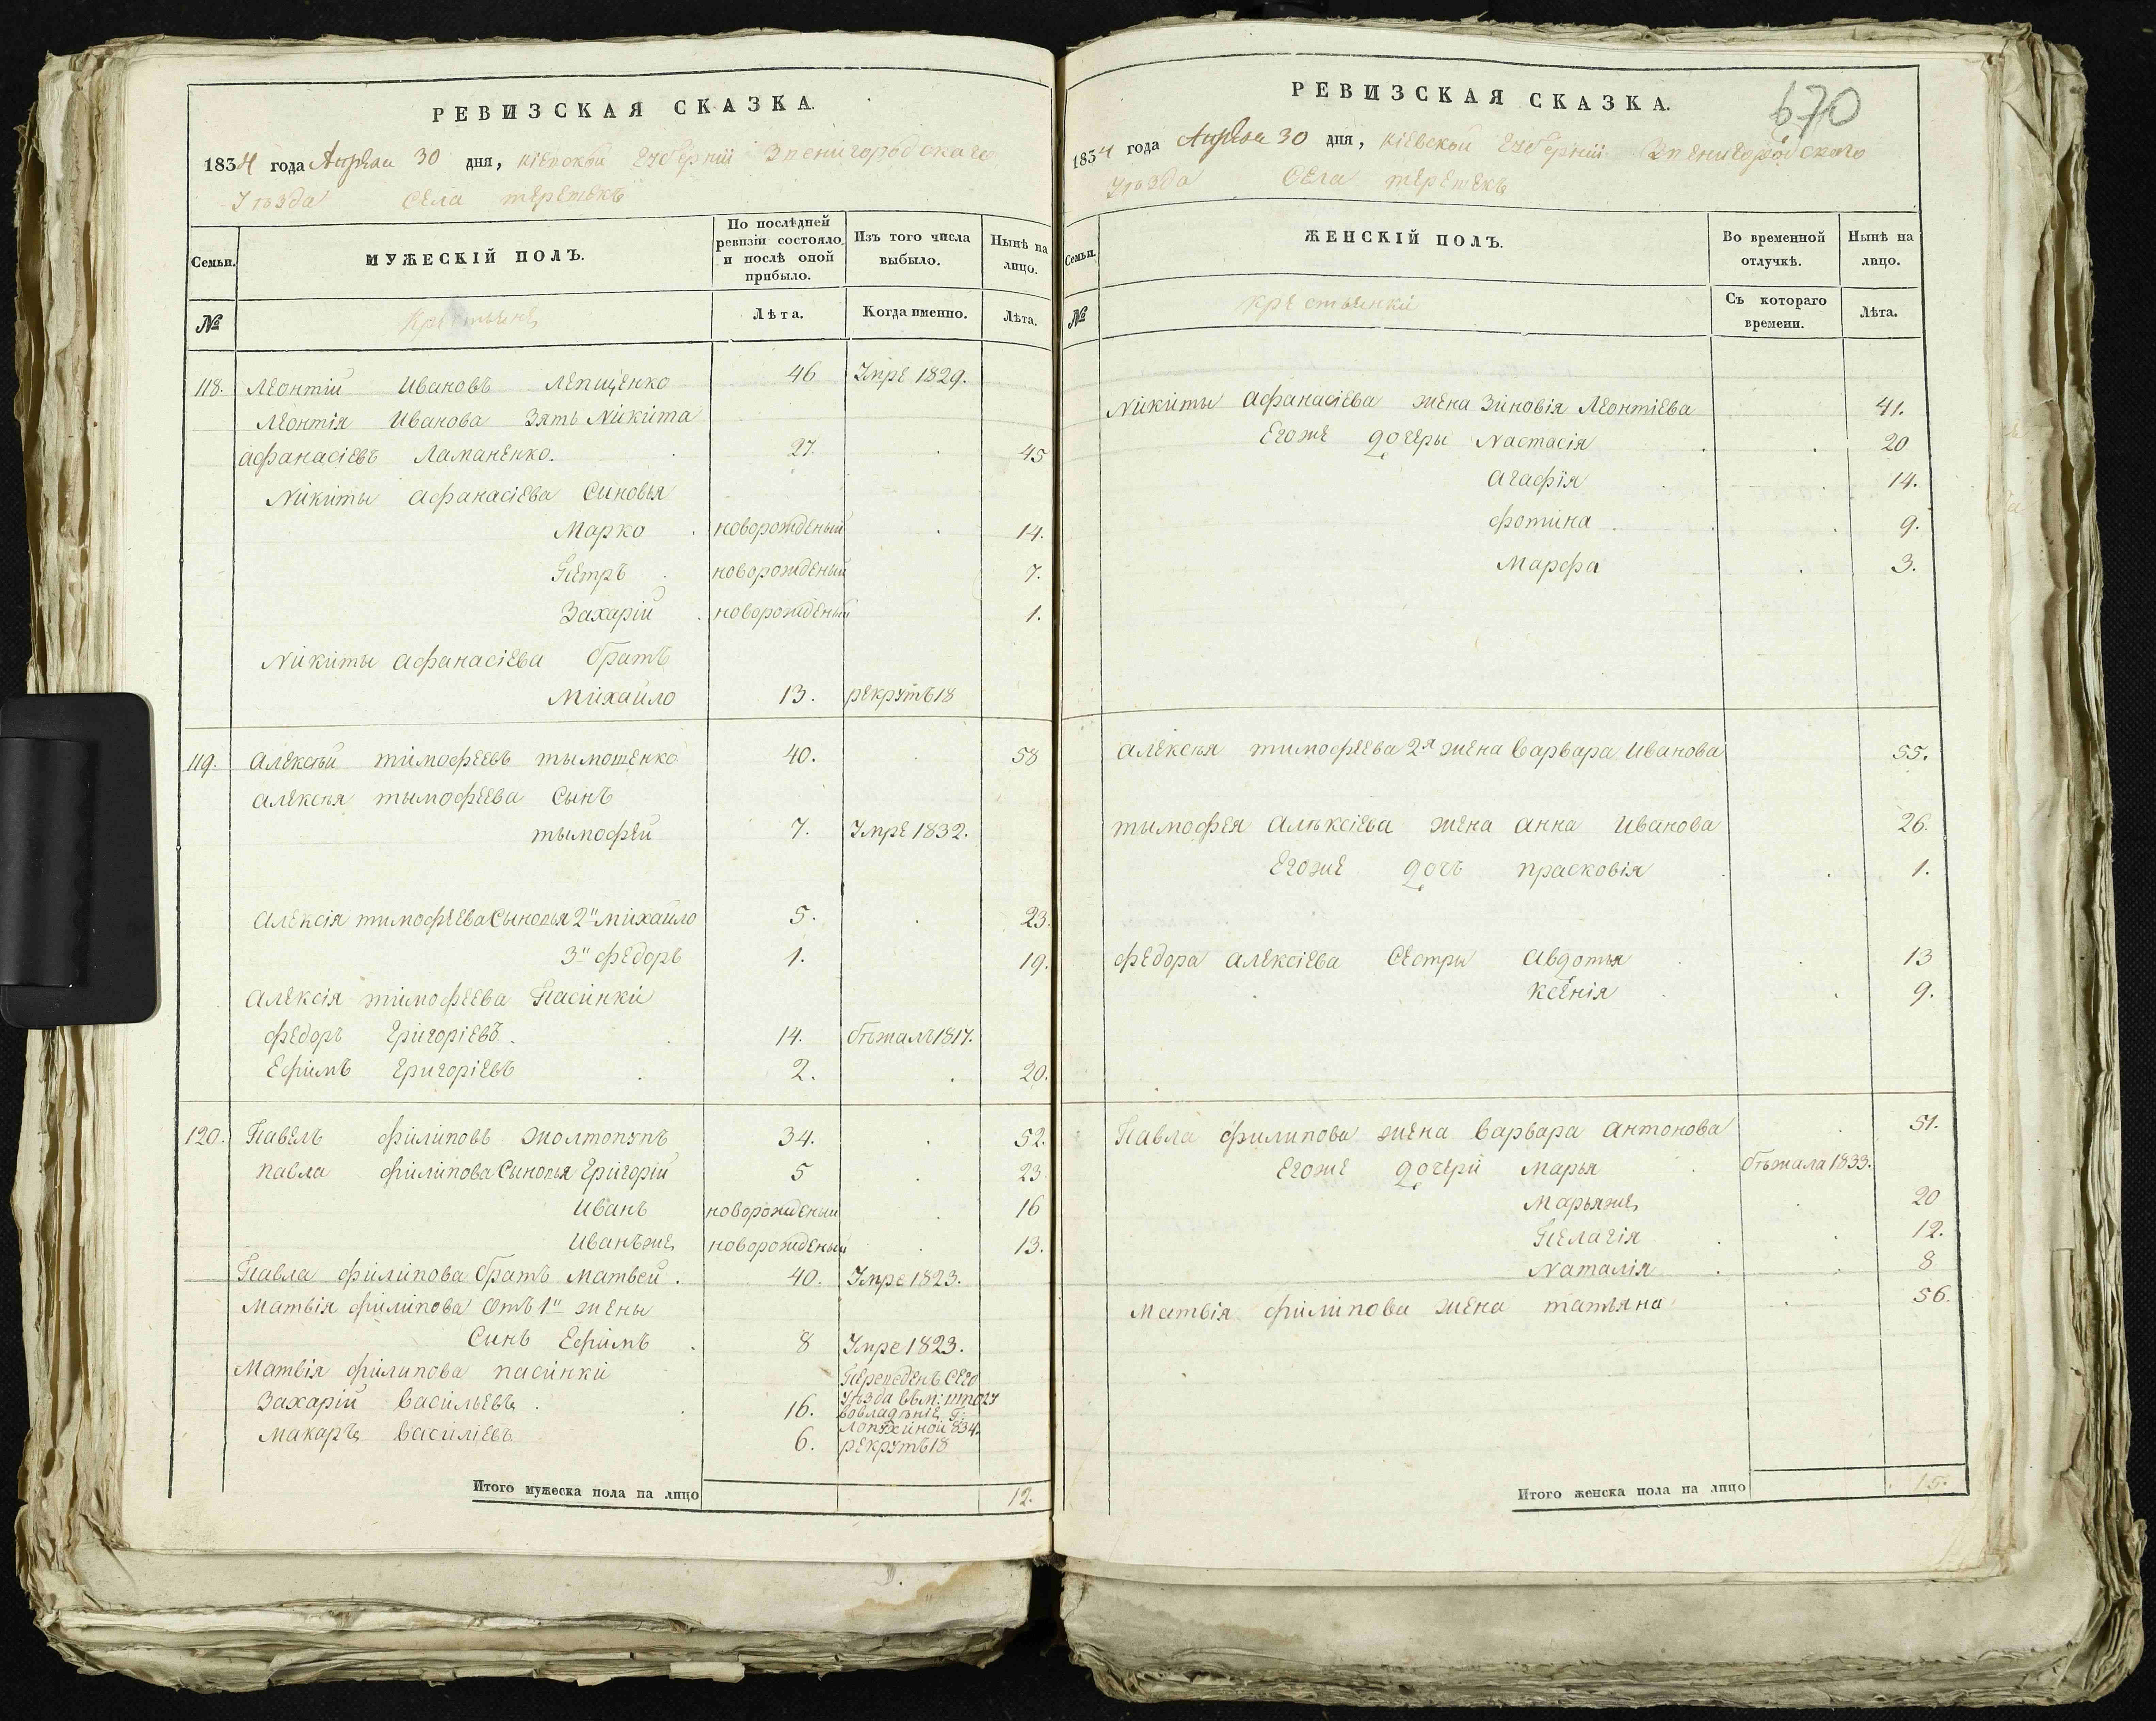 РЕВИЗСКАЯ СКАЗКА.
1834 года Апреля 30 дня, Кіевской Губерніи Звенигородскаго
Уѣзда Села терешекъ
Семьи.
МУЖЕСКІЙ ПОЛЪ.
По послѣдней ревизіи состояло и послѣ оной прибыло.
Изъ того числа выбыло.
Нынѣ на лицо.
№
Крестьяне
Лѣта.
Когда именно.
Лѣта.
118. Леонтій Ивановъ Лепищенко 46 Умре 1829.
Леонтія Иванова Зять Никита
афанасіевъ Ламаненко. 27. 45
Никиты афанасіева Синовья
Марко новорожденый 14.
Петръ новорожденый 7.
Захарій новорожденый 1.
Никиты афанасіева братъ
Михайло 13. рекрутъ 18
119. алексѣй тимофеевъ тымошенко 40. 58
алексѣя тымофеева Сынъ
тымофей 7. Умре 1832.
алексія тимофеева Сыновья 2й Михайло 5. 23.
3й федоръ 1. 19.
алексія тимофеева Пасинки
федоръ Григоріевъ. 14. бѣжалъ 1817.
Ефимъ Григоріевъ 2. 20.
120. Павелъ филиповъ жолтопупъ 34. 52.
павла филипова Сыновья Григорій 5 23
Иванъ новорожденый 16
Иванъже новорожденый 13.
Павла филипова братъ матвей. 40. Умре 1823.
матвія филипова отъ 1й жены
Синъ Ефимъ 8 Умре 1823.
Матвія филипова пасинки
Захарій Васильевъ 16. Переведенъ Сего Уѣзда Въ во владѣніе Г: Лопухиной 834.
Макаръ Василіевъ 6. рекрутъ 18
Итого мужеска пола на лицо 12.
670
РЕВИЗСКАЯ СКАЗКА.
1834 года Апреля 30 дня, Кіевской Губерніи Звенигородскаго
Уѣзда Села терешекъ
Семьи.
ЖЕНСКІЙ ПОЛЪ.
Во временной отлучкѣ.
Нынѣ на лицо.
№
крестьянки
Съ котораго времени.
Лѣта.
Никиты афанасіева жена Зиновія Леонтіева 41.
Егоже дочеры Настасія 20
агафія 14.
фотина 9.
Марфа 3.
алексѣя тимофеева 2я жена Варвара Иванова 55.
тымофея алѣксіева жена анна Иванова 26.
Егоже дочъ прасковія 1.
федора алексіева Сестры авдотья 13
ксенія 9.
Павла филипова жена Варвара антонова 51.
Егоже дочери Марья бѣжала 1833.
Марьяже 20
Пелагія 12.
Наталія 8
Матвія филипова жена татьяна 56.
Итого женска пола на лицо 15.